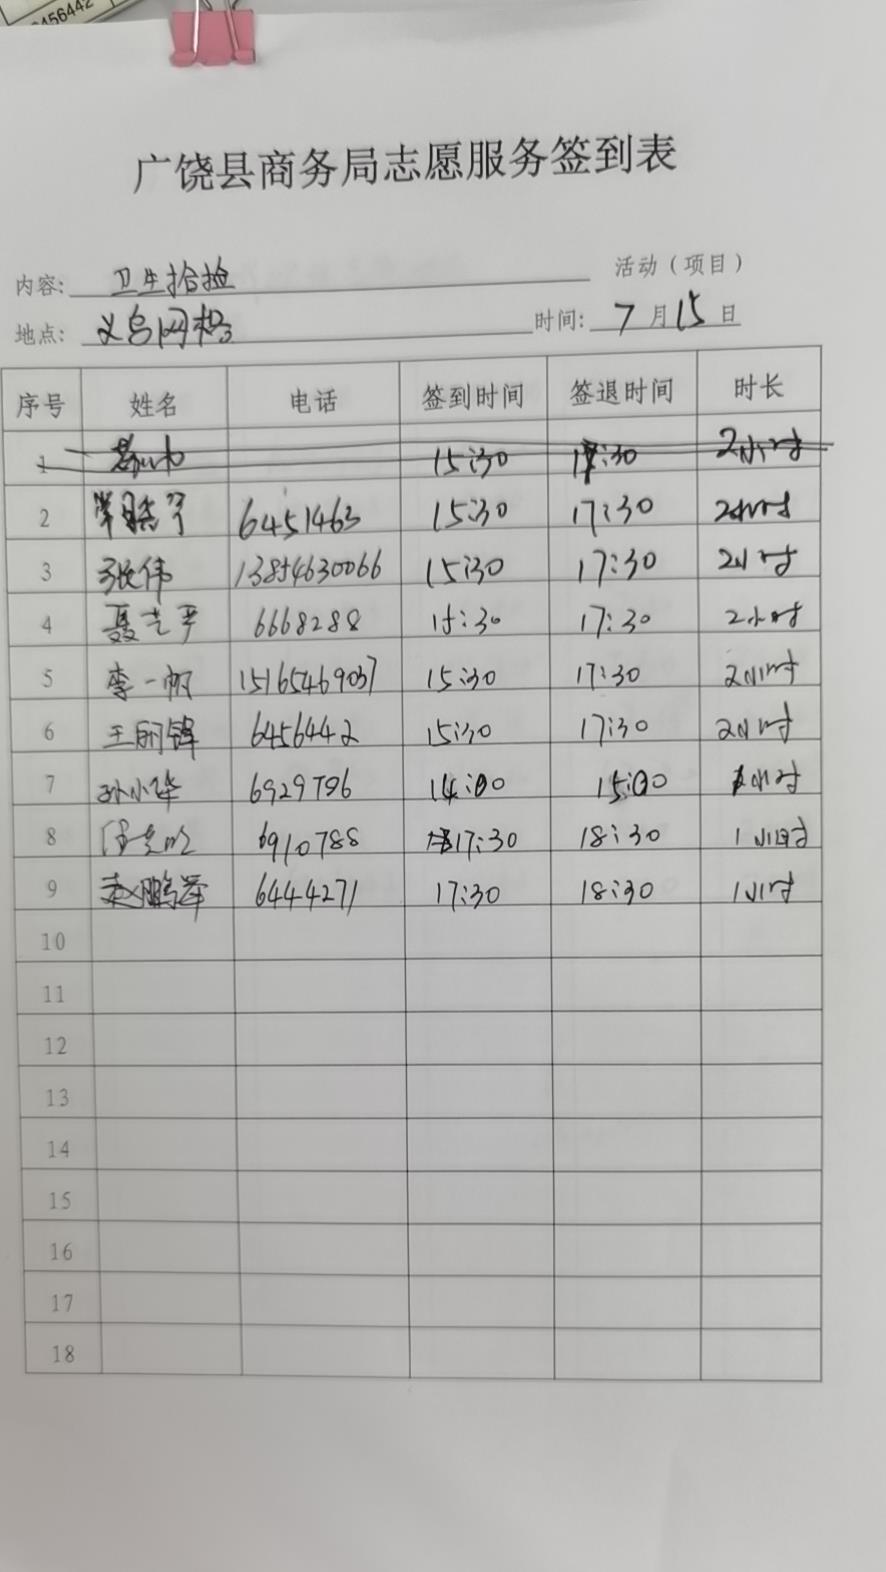 456442
广饶县商务局志愿服务签到表
内容: 卫生拾捡 活动（项目）
地点: 义乌网格 时间: 7月15日
序号 姓名 电话 签到时间 签退时间 时长
1 15:30 17:30 2小时
2 6451463 15:30 17:30 2小时
3 张伟 13854630066 15:30 17:30 2小时
4 6668288 15:30 17:30 2小时
5 李一帆 15165469037 15:30 17:30 2小时
6 王丽锋 6456442 15:30 17:30 2小时
7 孙小华 6929796 14:00 15:00 1小时
8 6910788 17:30 18:30 1小时
9 赵鹏举 6444271 17:30 18:30 1小时
10
11
12
13
14
15
16
17
18